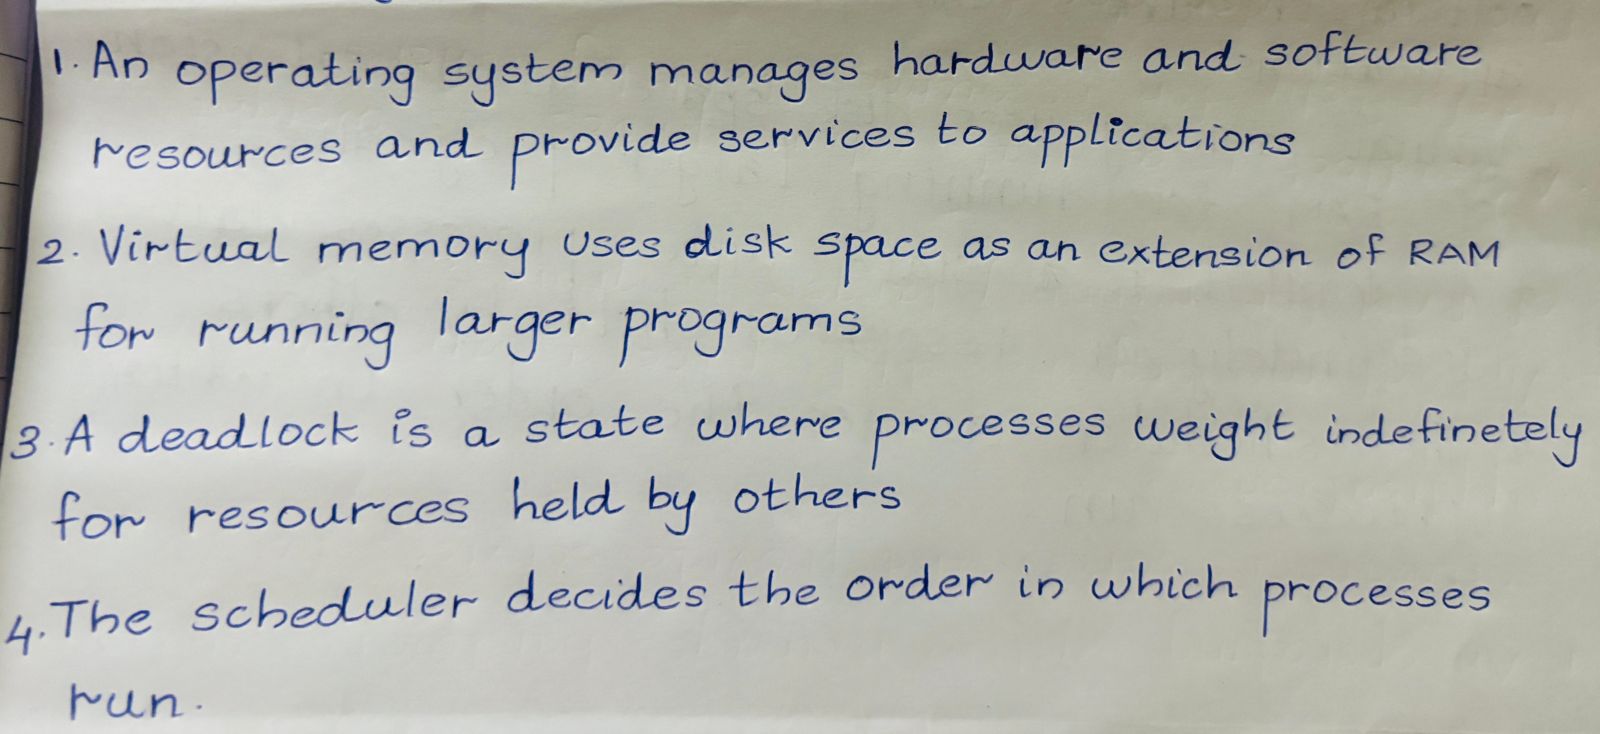 1. An operating system manages hardware and software
resources and provide services to applications
2. Virtual memory uses disk space as an extension of RAM
for running larger programs
3. A deadlock is a state where processes weight indefinetely
for resources held by others
4. The scheduler decides the order in which processes
run.